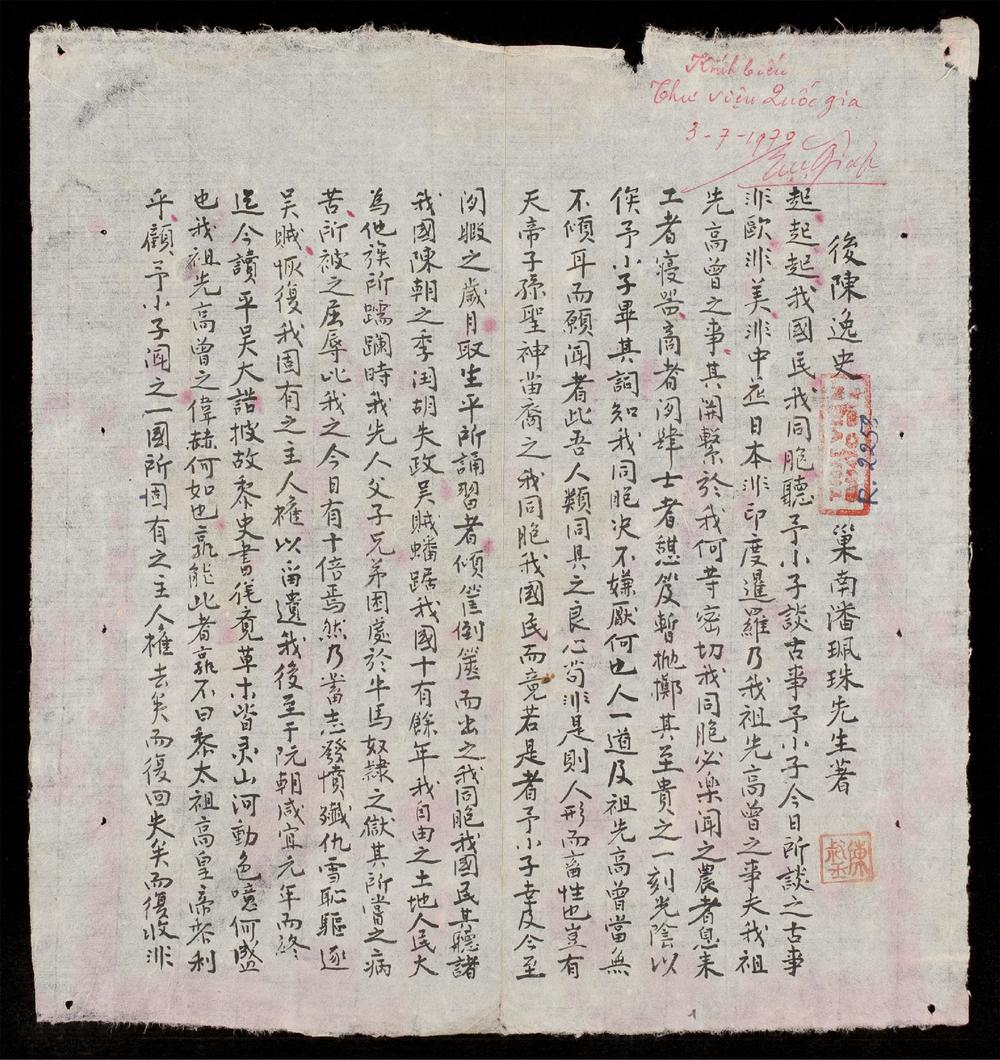 Kính biếu
Thư viện Quốc gia
3-7-1970
R.2257
後陳逸史 巢南潘珮珠先生著
起起起我國民我同胞聽予小子談古事予小子今日所談之古事
非歐非美非中並日本非印度暹羅乃我祖先高曾之事夫我祖
先高曾之事其開繫於我何等密切我同胞必樂聞之農者息耒
工者寢器商者閉肆士者憇笈暫抛擲其至貴之一刻光陰以
俟予小子畢其詞知我同胞决不嫌厭何也人一道及祖先高曾當無
不傾耳而願聞者此吾人類同具之良心苟非是則人形而畜性也豈有
天帝子孫聖神苗裔之我同胞我國民而竟若是者予小子幸及今至
閑暇之歲月取生平所誦習者傾筐倒篋而出之我同胞我國民其聽諸
我國陳朝之季閏胡失政吳賊蟠踞我國十有餘年我自由之土地人民大
為他族所蹂躪時我先人父子兄弟困處於牛馬奴隸之獄其所當之病
苦所被之屈辱比我之今日有十倍焉然乃蓄志發憤殲仇雪恥驅逐
吳賊恢復我固有之主人權以留遺我後至于阮朝咸宜元年而終
迄今讀平吳大誥披故黎史書徒覚草木皆灵山河動色噫何盛
也我祖先高曾之偉赫何如也孰能此者孰不曰黎太祖高皇帝黎利
乎顧予小子聞之一國所固有之主人權去矣而復回失矣而復收非